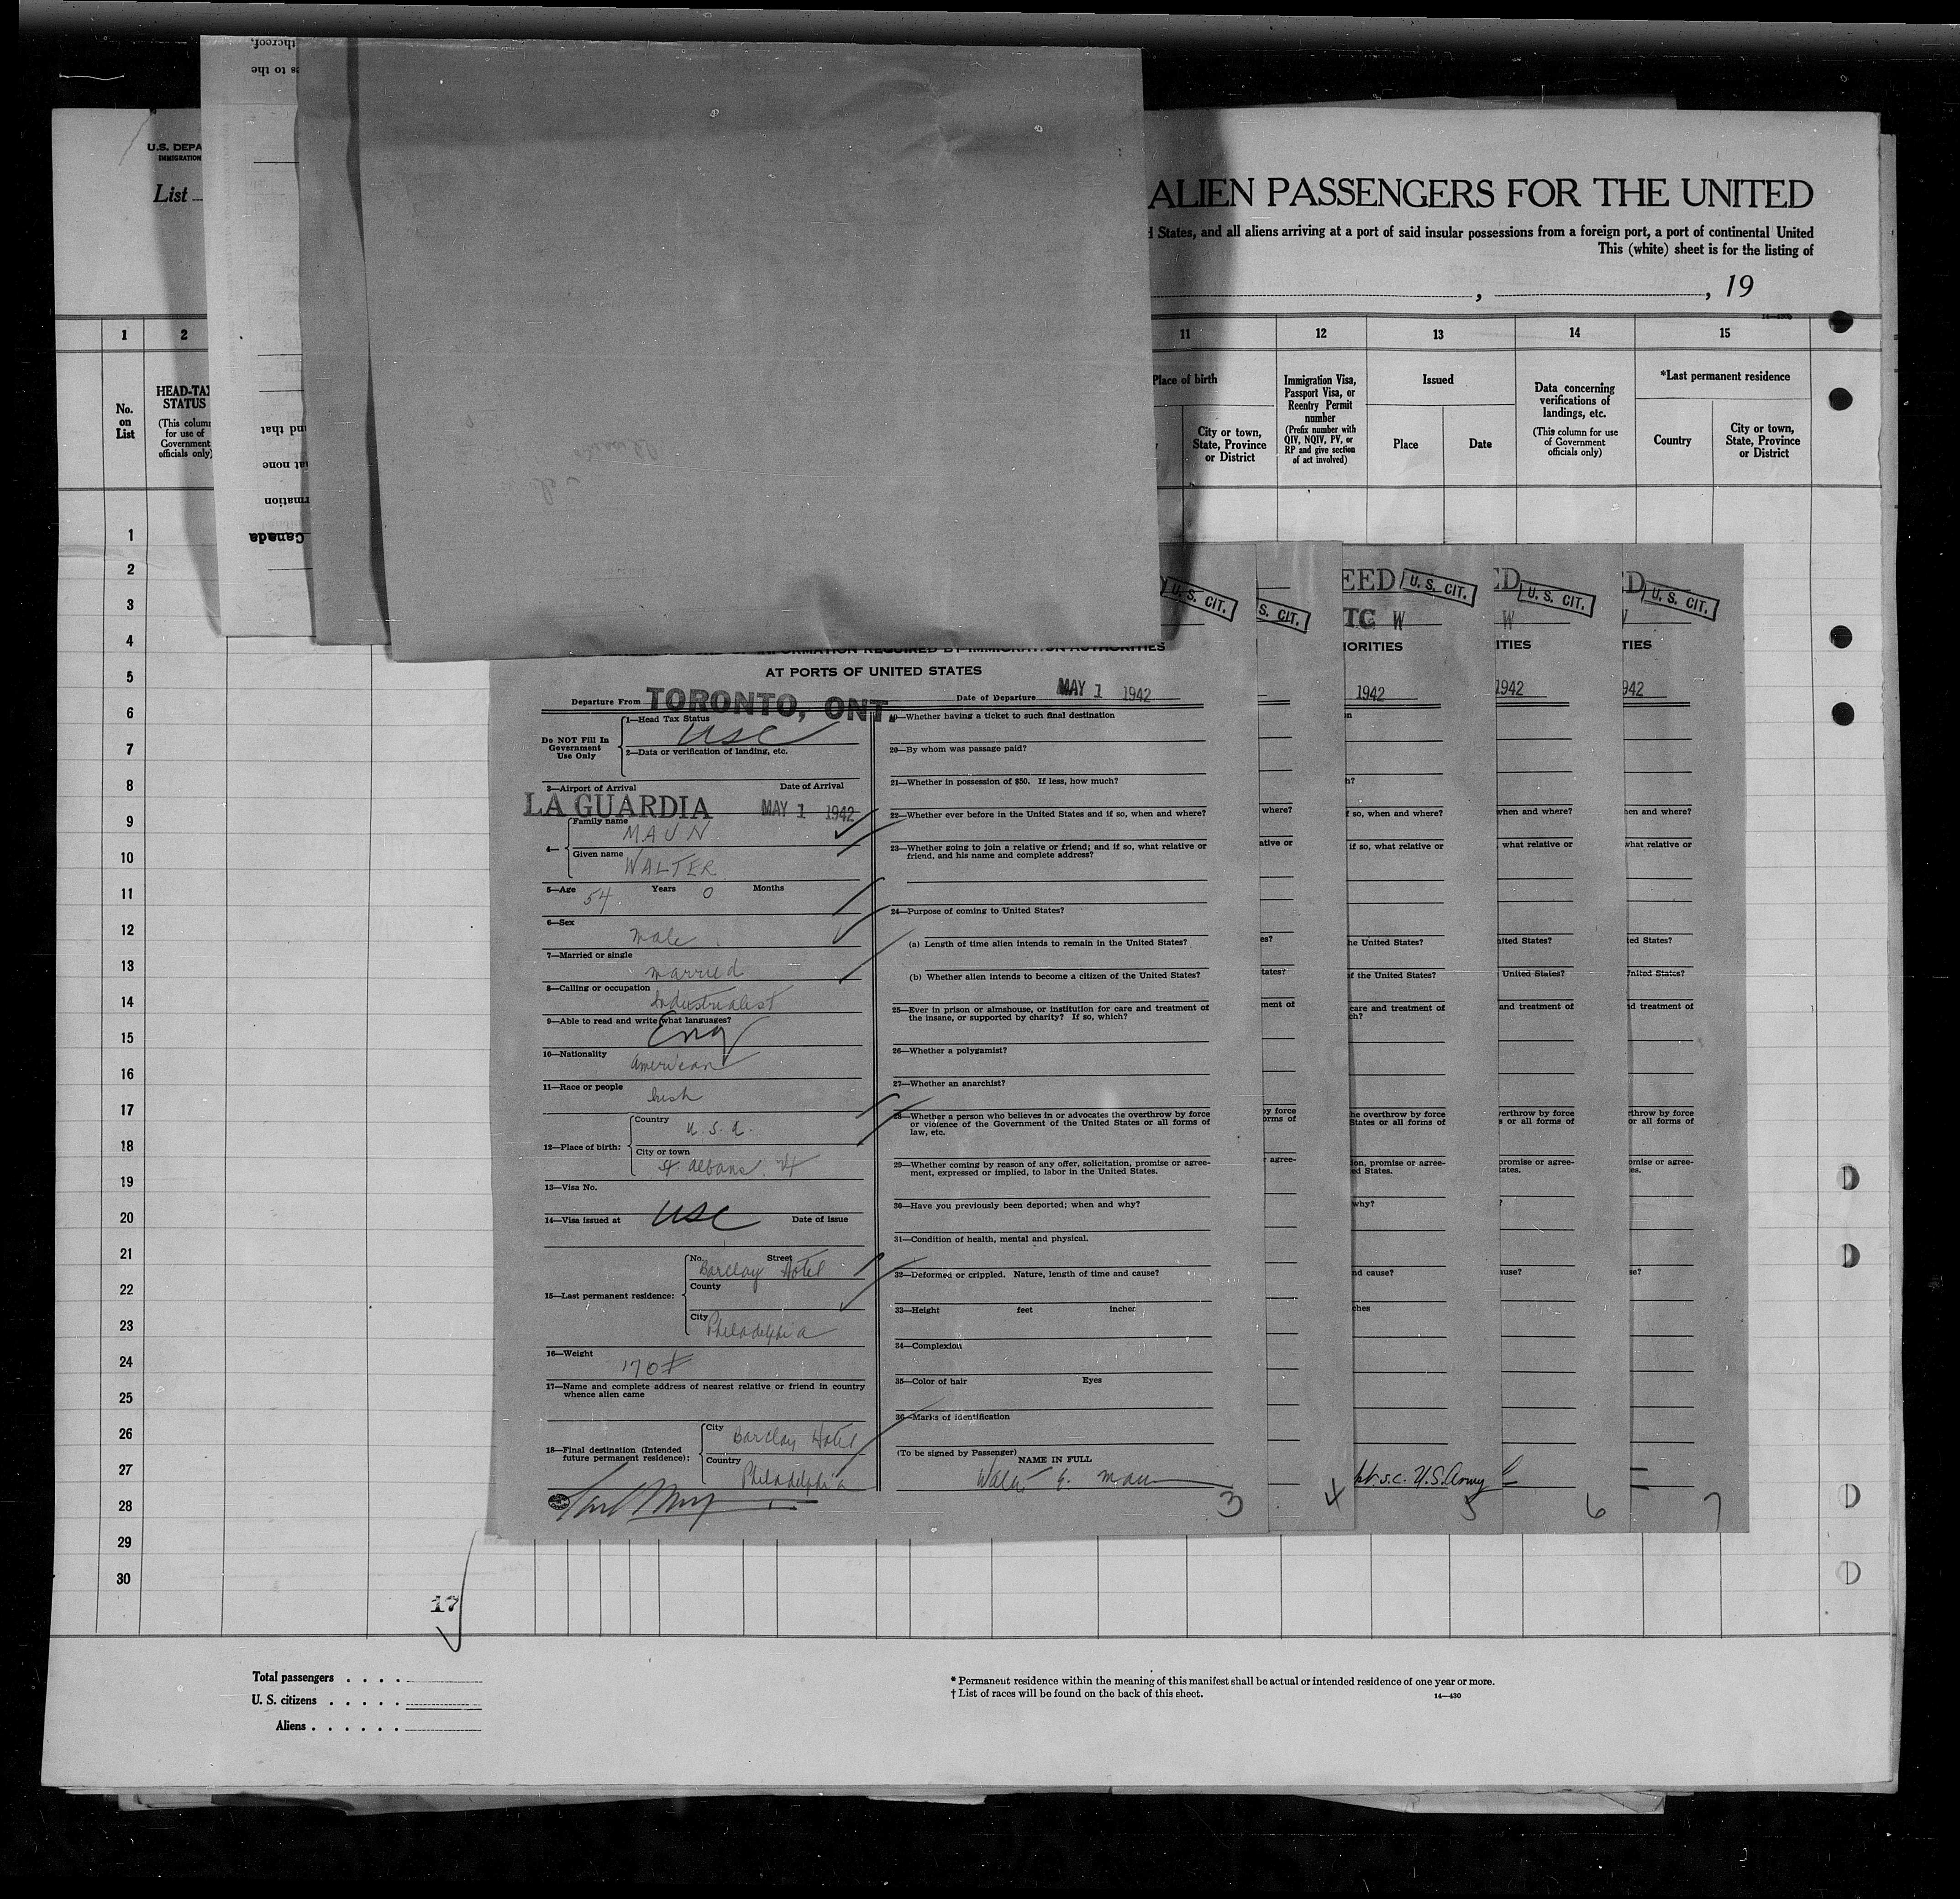 thereof,
s to the
U.S. DEPA
IMMIGRATION
List
ALIEN PASSENGERS FOR THE UNITED
States, and all aliens arriving at a port of said insular possessions from a foreign port, a port of continental United
This (white) sheet is for the listing of
, , 19
1 2 11 12 13 14 15
No. on List
HEAD-TAX STATUS
(This column for use of Government officials only)
Place of birth
City or town, State, Province or District
Immigration Visa, Passport Visa, or Reentry Permit number
(Prefix number with QIV, NQIV, PV, or RP and give section of act involved)
Issued
Place
Date
Data concerning verifications of landings, etc.
(This column for use of Government officials only)
*Last permanent residence
Country
City or town, State, Province or District
nd that
at none
rmation
Canada
1
2
3
4
5
6
7
8
9
10
11
12
13
14
15
16
17
18
19
20
21
22
23
24
25
26
27
28
29
30
U. S. CIT.
S. CIT.
EED U. S. CIT.
ED U. S. CIT.
D U. S. CIT.
TC W
W
INFORMATION REQUIRED BY IMMIGRATION AUTHORITIES
AT PORTS OF UNITED STATES
Departure From TORONTO, ONT.
Date of Departure MAY 1 1942
Do NOT Fill In Government Use Only
1—Head Tax Status
USC
2—Data or verification of landing, etc.
3—Airport of Arrival Date of Arrival
LA GUARDIA MAY 1 1942
4— Family name
MAUN
Given name
WALTER
5—Age 54 Years 0 Months
6—Sex
male
7—Married or single
married
8—Calling or occupation
Industrialist
9—Able to read and write what languages?
Eng
10—Nationality
American
11—Race or people
Irish
12—Place of birth:
Country
U.S.A.
City or town
St. Albans. Vt
13—Visa No.
14—Visa issued at USC Date of issue
15—Last permanent residence:
No. Street
Barclay Hotel
County
City
Philadelphia
16—Weight
170#
17—Name and complete address of nearest relative or friend in country
whence alien came
18—Final destination (Intended
future permanent residence):
City
Barclay Hotel
Country
Philadelphia
19—Whether having a ticket to such final destination
20—By whom was passage paid?
21—Whether in possession of $50. If less, how much?
22—Whether ever before in the United States and if so, when and where?
23—Whether going to join a relative or friend; and if so, what relative or
friend, and his name and complete address?
24—Purpose of coming to United States?
(a) Length of time alien intends to remain in the United States?
(b) Whether alien intends to become a citizen of the United States?
25—Ever in prison or almshouse, or institution for care and treatment of
the insane, or supported by charity? If so, which?
26—Whether a polygamist?
27—Whether an anarchist?
28—Whether a person who believes in or advocates the overthrow by force
or violence of the Government of the United States or all forms of
law, etc.
29—Whether coming by reason of any offer, solicitation, promise or agree-
ment, expressed or implied, to labor in the United States.
30—Have you previously been deported; when and why?
31—Condition of health, mental and physical.
32—Deformed or crippled. Nature, length of time and cause?
33—Height feet inches
34—Complexion
35—Color of hair Eyes
36—Marks of identification
(To be signed by Passenger)
NAME IN FULL
3
4
S.C. U.S. Army
5
6
7
17
Total passengers
U. S. citizens
Aliens
* Permanent residence within the meaning of this manifest shall be actual or intended residence of one year or more.
† List of races will be found on the back of this sheet.
14—430